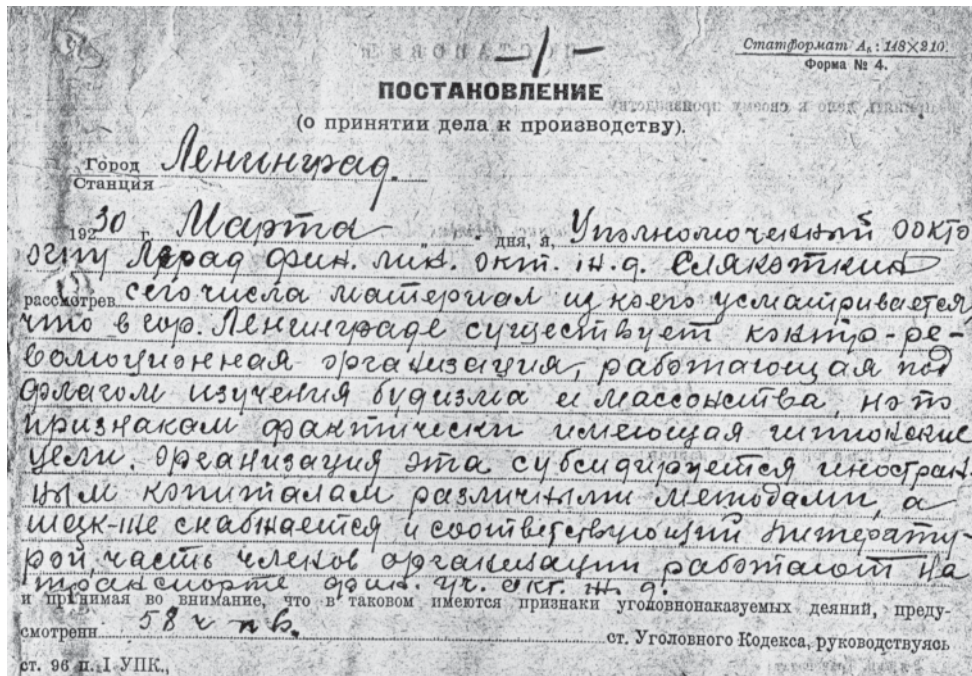 — 1 —
Статформат А₅: 148×210.
Форма № 4.
ПОСТАНОВЛЕНИЕ
(о принятии дела к производству).
Город
Станция
Ленинград.
1930 г. Марта " " дня, я, Уполномоченный ООКТО
ОГПУ фин. лин. окт. ж.д. Слякоткин
рассмотрев сего числа материал из коего усматривается
что в гор. Ленинграде существует контр-ре-
волюционная организация, работающая под
флагом изучения будизма и массонства, но по
признакам фактически имеющая шпионские
цели. Организация эта субсидируется иностран
ным копиталам различными методами, а
снабжается и соответствующий литерату-
рой, часть членов организации работают на
транспорте фин. уч. окт. ж. д.
и принимая во внимание, что в таковом имеются признаки уголовнонаказуемых деяний, преду-
смотренн. 58 ст. Уголовного Кодекса, руководствуясь
ст. 96 п. I УПК.,